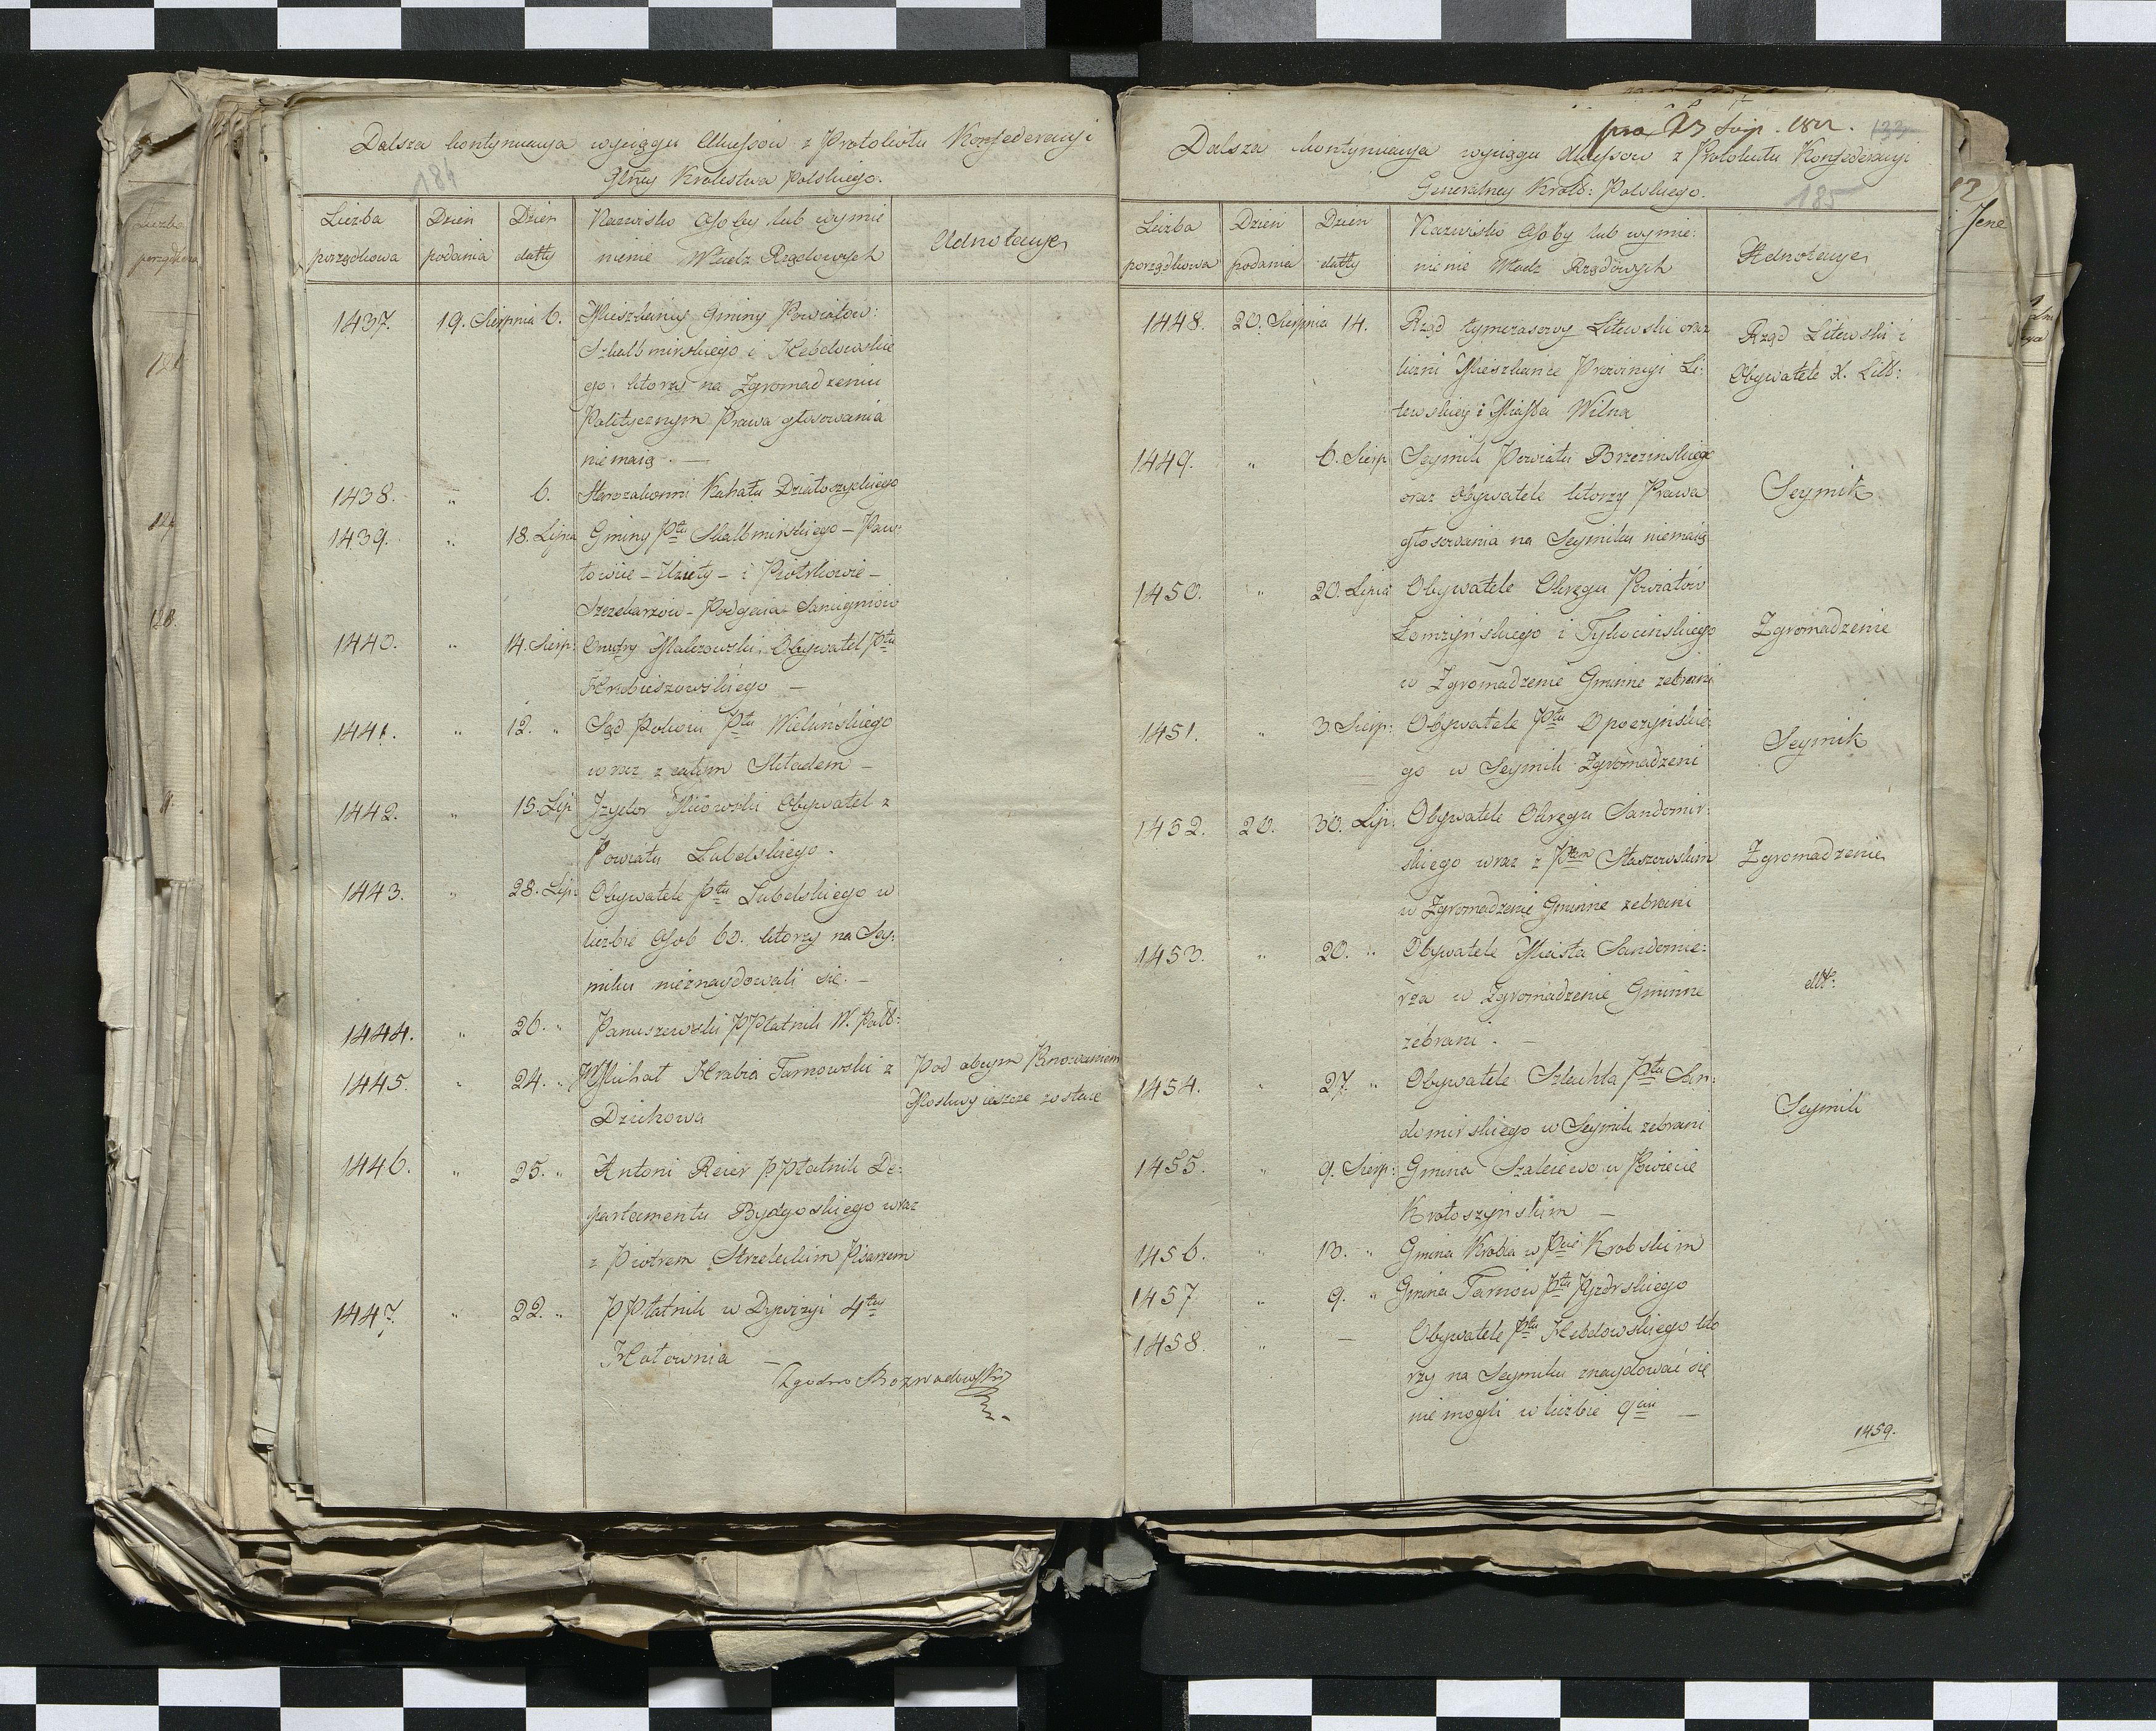 Dalsza kontynuacya wyciągu Akcessów z Protokołu Konfederacyi
Głney Krolestwa Polskiego.
184
Liczba porządkowa
Dzień podania
Dzień datty
Nazwisko Osoby lub wymienienie Władz Rządowych
Adnotacye
1437. 19. Sierpnia 6. Mieszkańcy Gminy Powiatow:
Szkalbmirskiego i Hebdowskie
go, ktorzy na Zgromadzeniu
Politycznym Prawa głosowania
niemaią. —
1438. „ 6. Starozakonni Kahału Działoszyckiego
1439. „ 18. Lipca Gminy Ptu Skalbmirskiego — Paw:
łowice — — i Piotrkowie —
Szczekarzow —
1440. „ 14. Sierp: Onufry Obywatel Ptu
Hrubieszowskiego —
1441. „ 12. „ Sąd Pokoiu Ptu Wieluńskiego
wraz z całym Składem —
1442. „ 15. Lip Izydor Obywatel z
Powiatu Lubelskiego.
1443. „ 28. Lip: Obywatele Ptu Lubelskiego w
liczbie Osob 60. ktorzy na Sey:
miku nieznaydowali się. —
1444. „ 26. „ Januszewski PPłatnik W. Pols:
1445. „ 24. „ Michał Hrabia Tarnowski z
Dzikowa
Pod obcym Panowaniem
Moskwy ieszcze zostaie
1446. „ 25. „ Antoni Reier PPłatnik De:
partamentu Bydgoskiego wraz
z Piotrem Strzeleckim Pisarzem
1447. „ 22. „ PPłatnik w Dywizyi 4tey
—
Zgodno Rozwadowski
pra 23 Sierp. 1812.
133
Dalsza kontynuacya wyciągu Akcessow z Protokułu Konfederacyi
Generalney Krols: Polskiego.
185
Liczba porządkowa
Dzień podania
Dzień datty
Nazwisko Osoby lub wymie:
nienie Władz Rządowych
Adnotacye
1448. 20. Sierpnia 14. Rząd tymczasowy Litewski oraz
liczni Mieszkańce Prowincyi Li:
tewskiey i Miasta Wilna
Rząd Litewski i
Obywatele X. Litt:
1449. „ 6. Sierp Seymik Powiatu Brzezinskiego
oraz Obywatele ktorzy Prawa
głosowania na Seymiku niemaią
Seymik
1450. „ 20. Lipca Obywatele Okręgu Powiatów
Łomzyńskiego i Tykocińskiego
w Zgromadzenie Gminne zebrani
Zgromadzenie
1451. „ 3. Sierp: Obywatele Ptu Opoczyńskie
go w Seymik Zgromadzeni
Seymik
1452. 20. 30. Lip: Obywatele Okręgu Sandomir:
skiego wraz z Ptem Staszowskim
w Zgromadzenie Gminne zebrani
Zgromadzenie
1453. „ 20. „ Obywatele Miasta Sandomie:
rza w Zgromadzenie Gminne
zebrani. —
ditto
1454. „ 27. „ Obywatele Szlachta Ptu San:
domirskiego w Seymik zebrani
Seymik
1455. „ 9. Sierp: Gmina Szalejewo w Powiecie
Krotoszyńskim —
1456. „ 13. „ Gmina Krobia w Pcie Krobskim
1457 „ 9. „ Gmina Tarnow Ptu Pyzdrskiego
1458. „ — Obywatele Ptu Hebdowskiego kto
rzy na Seymiku znaydować się
niemogli w liczbie 9ciu —
1459.